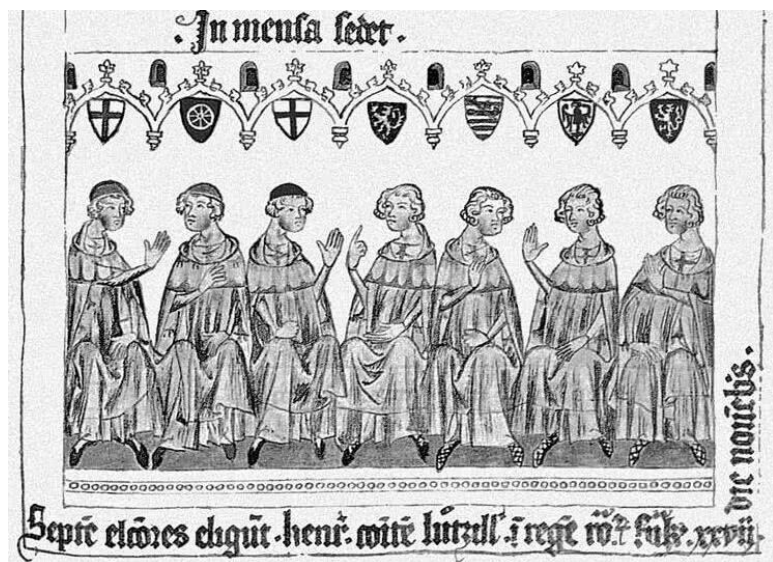 . In mensa sedet .
Septē elcōres eligūt . henr̄ . comitē lutzell' . ī regē ro . xxvij .
die nouēbis .